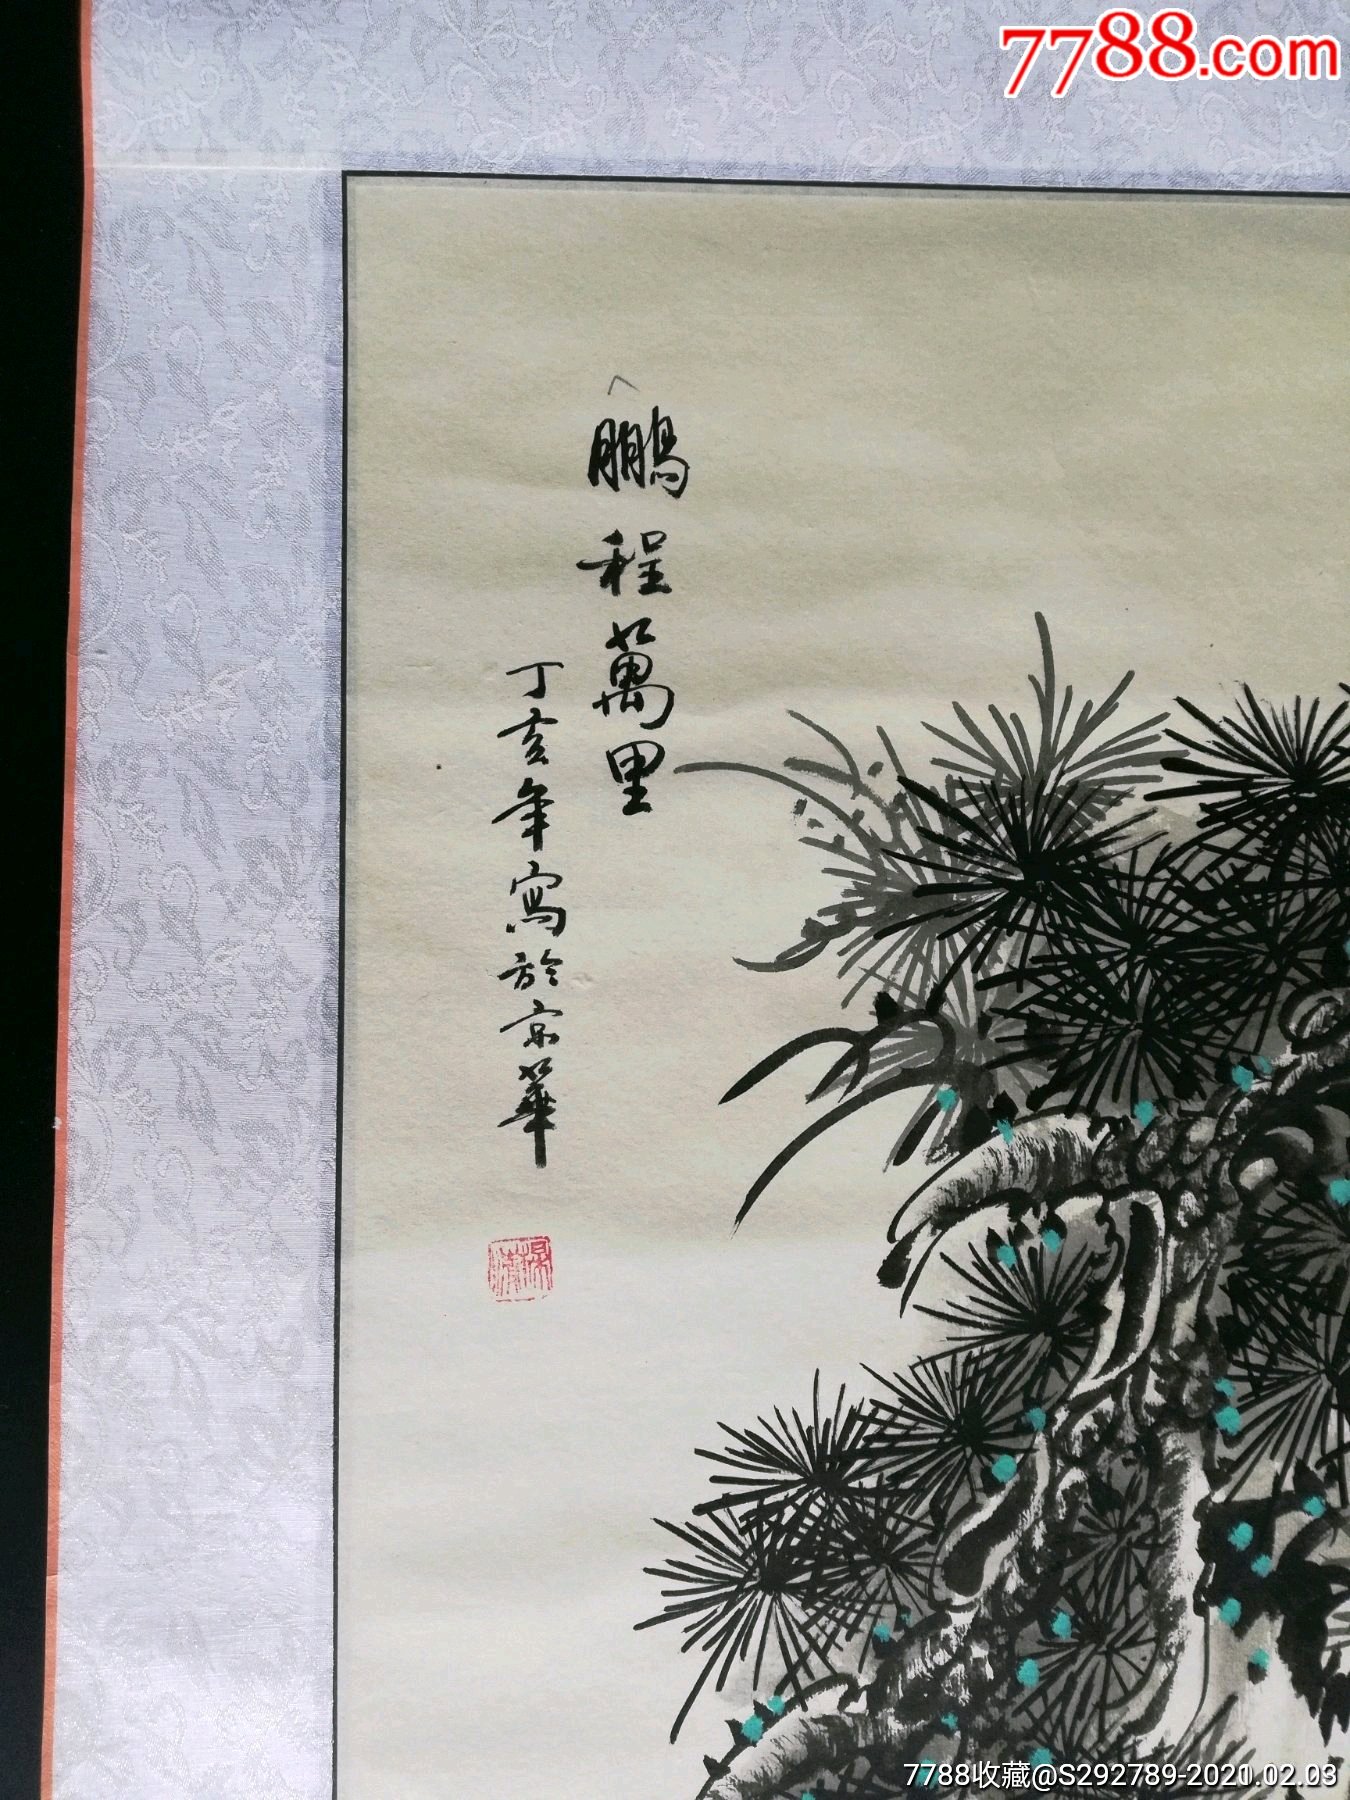 7788.com
鵬程萬里
丁亥年寫於京華
7788收藏@S292789-2021.02.03